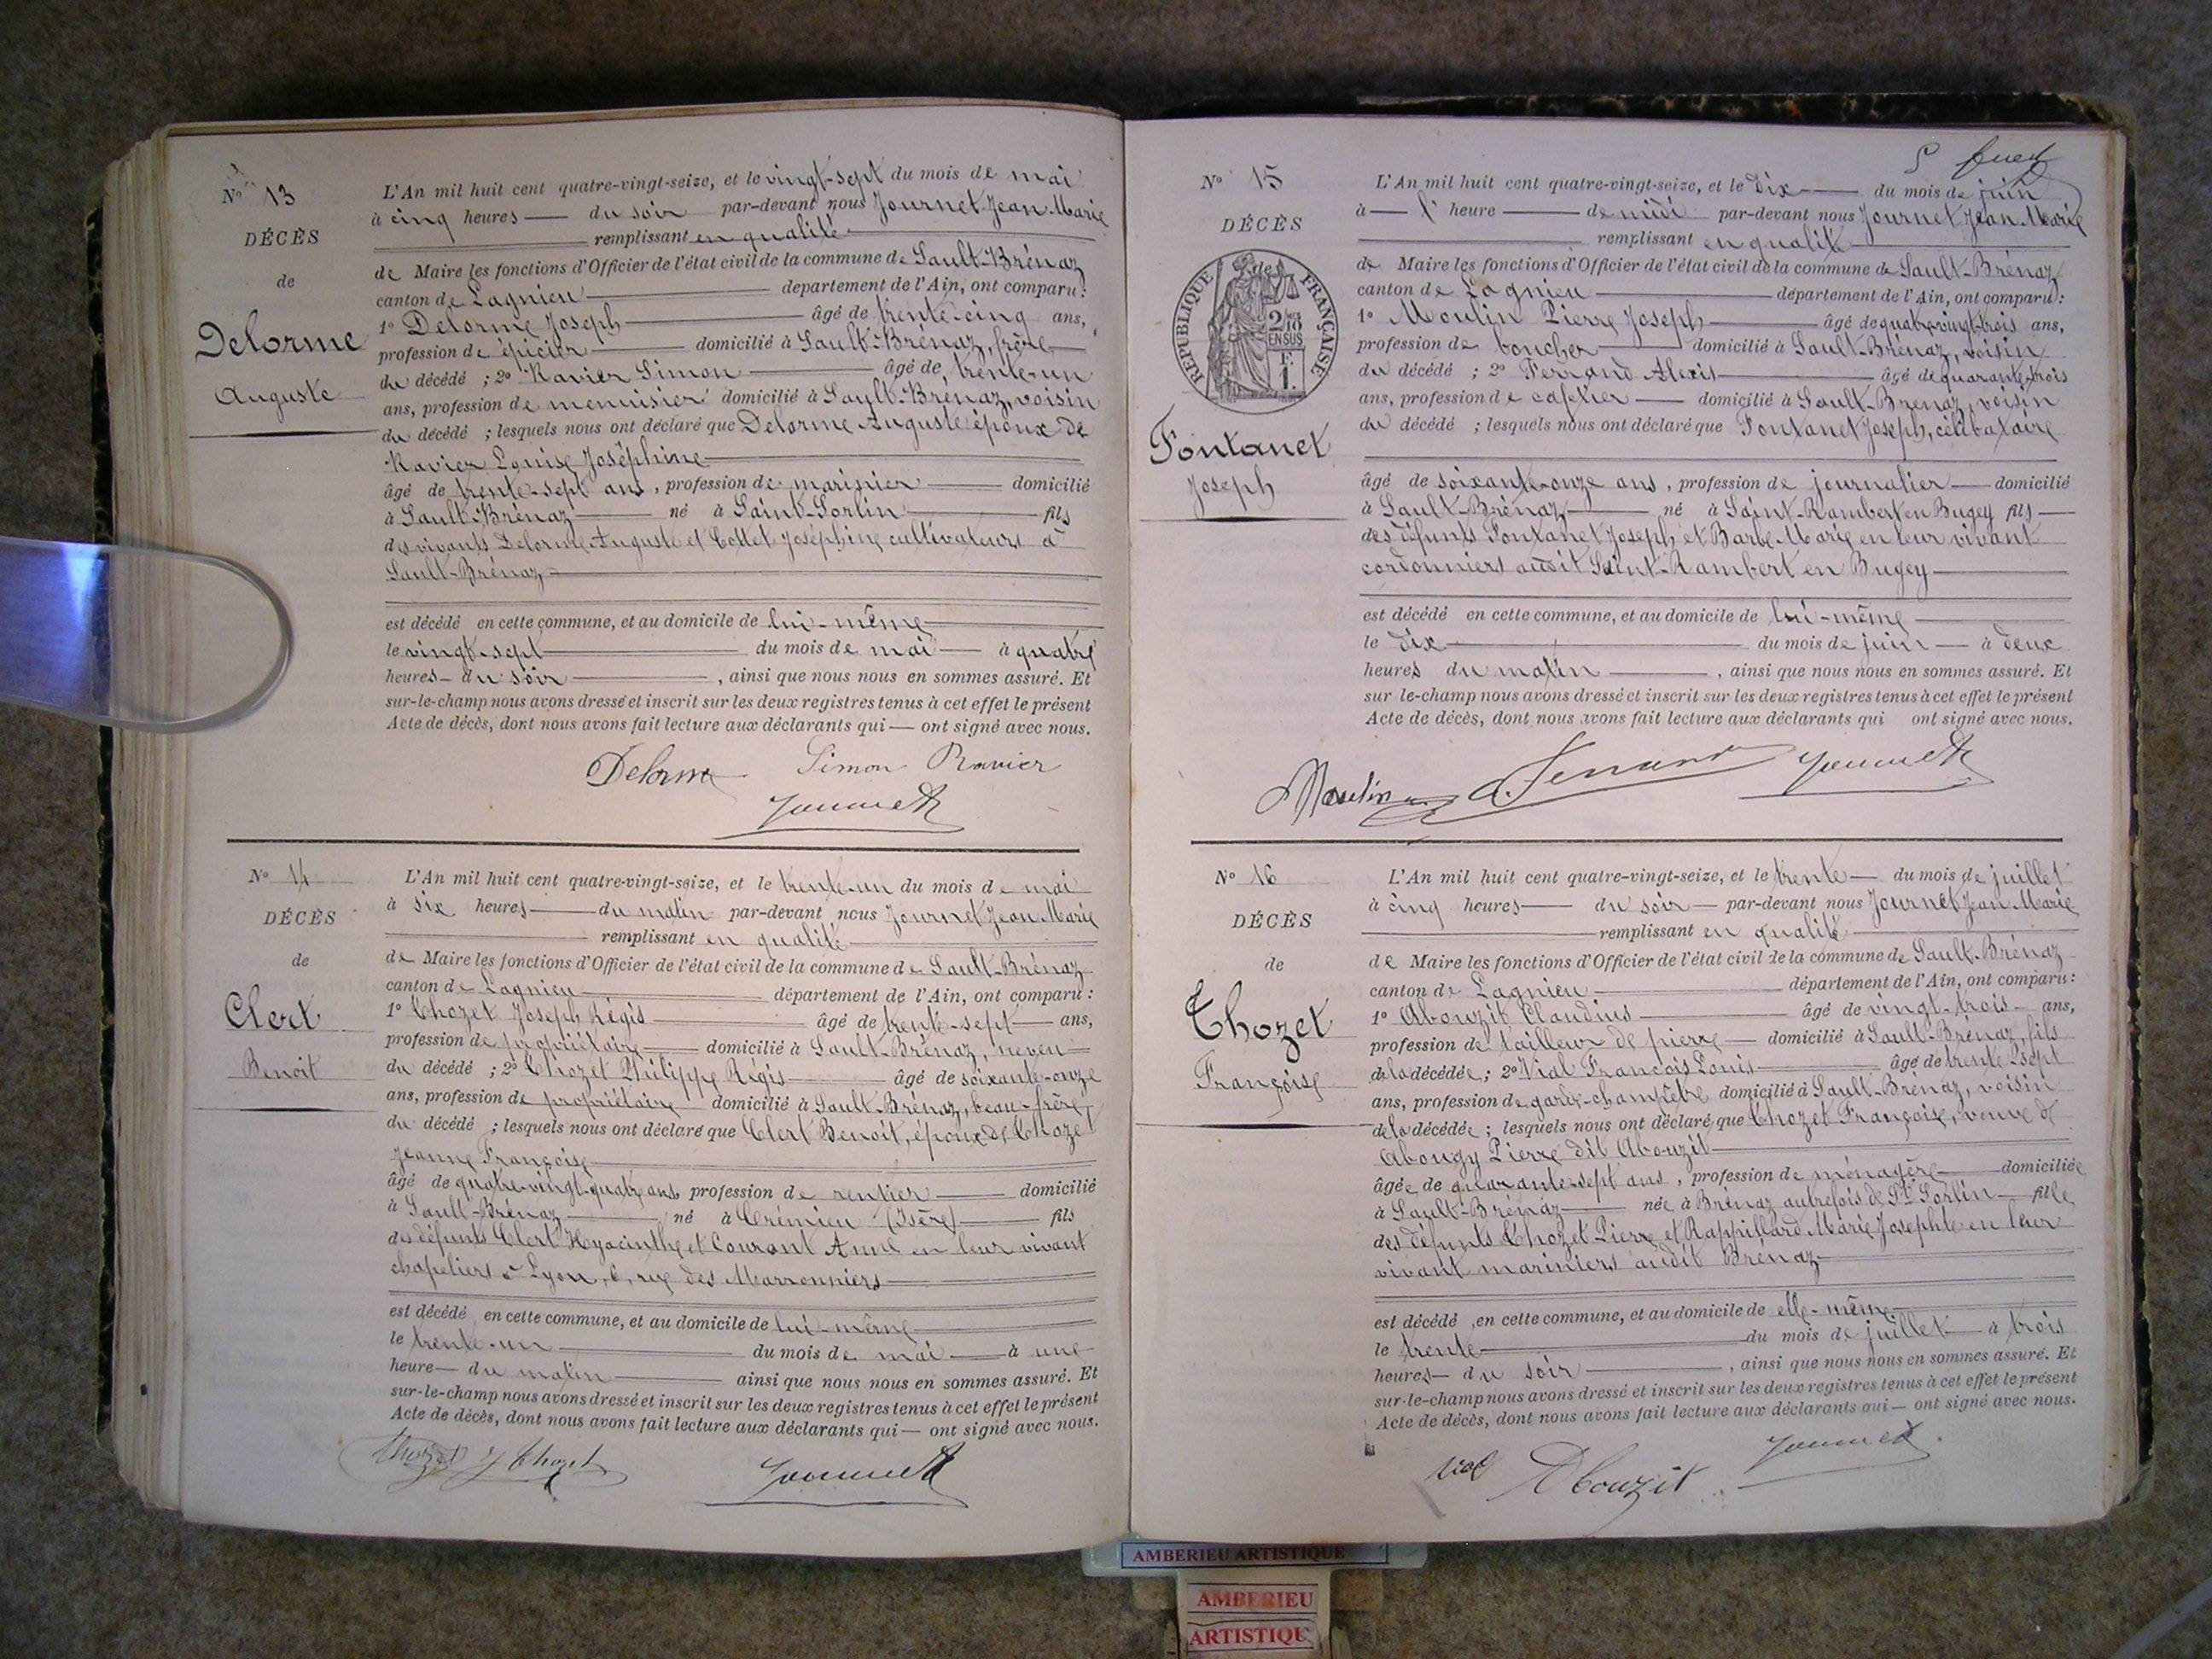 N° 13
DÉCÈS
de
Delorme
Auguste
L'An mil huit cent quatre-vingt-seize, et le vingt-sept du mois de mai
à cinq heures du soir par-devant nous Journet Jean Marie
remplissant en qualité
de Maire les fonctions d'Officier de l'état civil de la commune de Sault-Brénaz
canton de Lagnieu département de l'Ain, ont comparu:
1° Delorme Joseph âgé de trente-cinq ans,
profession de épicier domicilié à Sault-Brénaz, frère
du décédé ; 2° Ravier Simon âgé de trente-un
ans, profession de menuisier domicilié à Sault-Brénaz, voisin
du décédé ; lesquels nous ont déclaré que Delorme Auguste époux de
Ravier Louise Joséphine
âgé de trente-sept ans, profession de marinier domicilié
à Sault-Brénaz né à Saint-Sorlin fils
des vivants Delorme Auguste et Collet Joséphine cultivateurs à
Sault-Brénaz
est décédé en cette commune, et au domicile de lui-même
le vingt-sept du mois de mai à quatre
heures du soir, ainsi que nous nous en sommes assuré. Et
sur-le-champ nous avons dressé et inscrit sur les deux registres tenus à cet effet le présent
Acte de décès, dont nous avons fait lecture aux déclarants qui ont signé avec nous.
Delorme Simon Ravier
Journet
N° 14
DÉCÈS
de
Clert
Benoit
L'An mil huit cent quatre-vingt-seize, et le trente-un du mois de mai
à six heures du matin par-devant nous Journet Jean Marie
remplissant en qualité
de Maire les fonctions d'Officier de l'état civil de la commune de Sault-Brénaz
canton de Lagnieu département de l'Ain, ont comparu :
1° Thozet Joseph Régis âgé de trente-sept ans,
profession de propriétaire domicilié à Sault-Brénaz, neveu
du décédé ; 2° Thozet Philippe Régis âgé de soixante-onze
ans, profession de propriétaire domicilié à Sault-Brénaz, beau-frère
du décédé ; lesquels nous ont déclaré que Clert Benoit, époux de Thozet
Jeanne Françoise
âgé de quatre-vingt-quatre ans profession de rentier domicilié
à Sault-Brénaz né à Crémieu (Isère) fils
des défunts Clert Hyacinthe et Courant Anne en leur vivant
chapeliers à Lyon, 6, rue des Marronniers
est décédé en cette commune, et au domicile de lui-même
le trente-un du mois de mai à une
heure du matin ainsi que nous nous en sommes assuré. Et
sur-le-champ nous avons dressé et inscrit sur les deux registres tenus à cet effet le présent
Acte de décès, dont nous avons fait lecture aux déclarants qui ont signé avec nous.
Thozet J Thozet Journet
N° 15
DÉCÈS
de
RÉPUBLIQUE FRANÇAISE
2/10 EN SUS
F 1.
Fontanet
Joseph
L'An mil huit cent quatre-vingt-seize, et le dix du mois de juin
à l' heure de midi par-devant nous Journet Jean Marie
remplissant en qualité
de Maire les fonctions d'Officier de l'état civil de la commune de Sault-Brénaz
canton de Lagnieu département de l'Ain, ont comparu :
1° Moulin Pierre Joseph âgé de quatre-vingt-trois ans,
profession de boucher domicilié à Sault-Brénaz, voisin
du décédé ; 2° Ferrand Alexis âgé de quarante-trois
ans, profession de cafetier domicilié à Sault-Brénaz, voisin
du décédé ; lesquels nous ont déclaré que Fontanet Joseph, célibataire
âgé de soixante-onze ans, profession de journalier domicilié
à Sault-Brénaz né à Saint-Rambert en Bugey fils
des défunts Fontanet Joseph et Barbe Marie en leur vivant
cordonniers audit Saint-Rambert en Bugey
est décédé en cette commune, et au domicile de lui-même
le dix du mois de juin à deux
heures du matin, ainsi que nous nous en sommes assuré. Et
sur-le-champ nous avons dressé et inscrit sur les deux registres tenus à cet effet le présent
Acte de décès, dont nous avons fait lecture aux déclarants qui ont signé avec nous.
Moulin A. Ferrand Journet
N° 16
DÉCÈS
de
Thozet
Françoise
L'An mil huit cent quatre-vingt-seize, et le trente du mois de juillet
à cinq heures du soir par-devant nous Journet Jean Marie
remplissant en qualité
de Maire les fonctions d'Officier de l'état civil de la commune de Sault-Brénaz
canton de Lagnieu département de l'Ain, ont comparu :
1° Abouzit Claudius âgé de vingt-trois ans,
profession de tailleur de pierre domicilié à Sault-Brénaz, fils
de la décédée ; 2° Vial François Louis âgé de trente-sept
ans, profession de garde-champêtre domicilié à Sault-Brénaz, voisin
de la décédée ; lesquels nous ont déclaré que Thozet Françoise, veuve de
Abougy Pierre dit Abouzit
âgée de quarante-sept ans, profession de ménagère domiciliée
à Sault-Brénaz née à Brénaz autrefois de St Sorlin fille
des défunts Thozet Pierre et Rappillard Marie Josephte en leur
vivant mariniers audit Brénaz
est décédé, en cette commune, et au domicile de elle-même
le trente du mois de juillet à trois
heures du soir, ainsi que nous nous en sommes assuré. Et
sur-le-champ nous avons dressé et inscrit sur les deux registres tenus à cet effet le présent
Acte de décès, dont nous avons fait lecture aux déclarants qui ont signé avec nous.
Vial Abouzit Journet
AMBERIEU ARTISTIQUE
AMBERIEU
ARTISTIQU